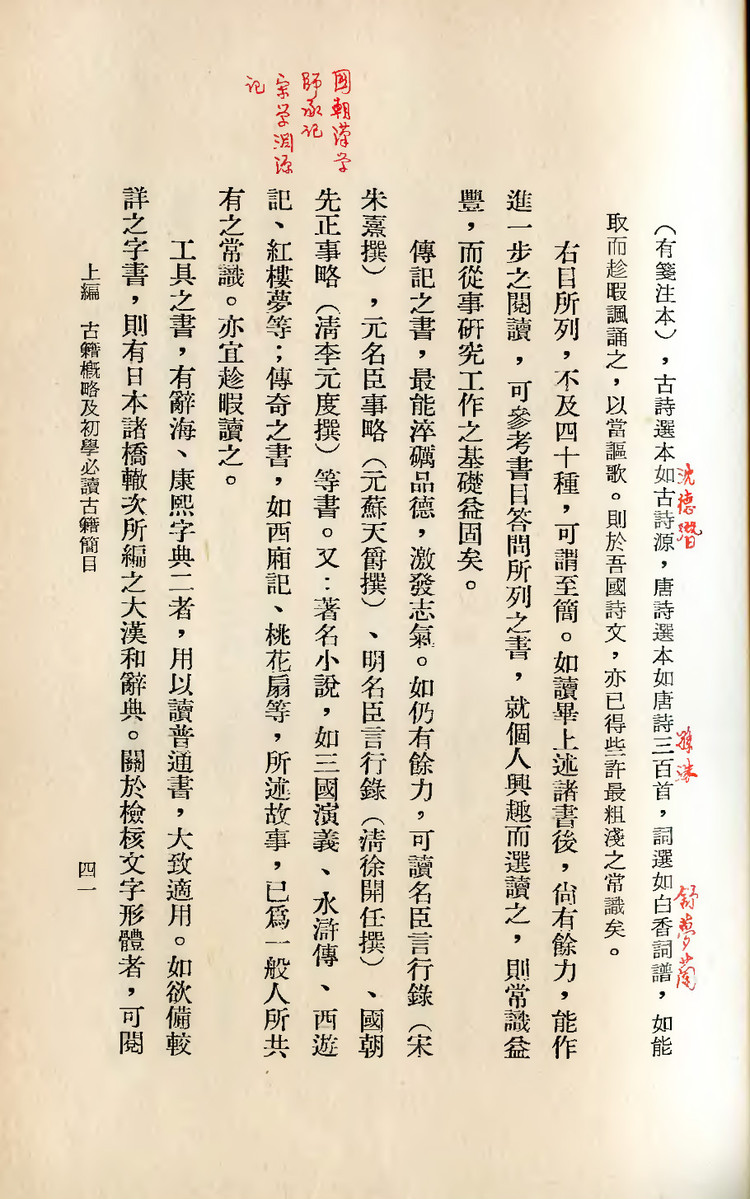 國朝漢学
師承记
宋学淵源
记
(有箋注本),古詩選本如古詩源,唐詩選本如唐詩三百首,詞選如白香詞譜,如能
沈德潛
孫洙
舒夢蘭
取而趁暇諷誦之,以當謳歌。則於吾國詩文,亦已得些許最粗淺之常識矣。
右目所列,不及四十種,可謂至簡。如讀畢上述諸書後,尚有餘力,能作
進一步之閱讀,可參考書目答問所列之書,就個人興趣而選讀之,則常識益
豐,而從事研究工作之基礎益固矣。
傳記之書,最能淬礪品德,激發志氣。如仍有餘力,可讀名臣言行錄(宋
朱熹撰),元名臣事略(元蘇天爵撰)、明名臣言行錄(清徐開任撰)、國朝
先正事略(清李元度撰)等書。又:著名小說,如三國演義、水滸傳、西遊
記、紅樓夢等;傳奇之書,如西廂記、桃花扇等,所述故事,已爲一般人所共
有之常識。亦宜趁暇讀之。
工具之書,有辭海、康熙字典二者,用以讀普通書,大致適用。如欲備較
詳之字書,則有日本諸橋轍次所編之大漢和辭典。關於檢核文字形體者,可閱
上編 古籍概略及初學必讀古籍簡目 四一